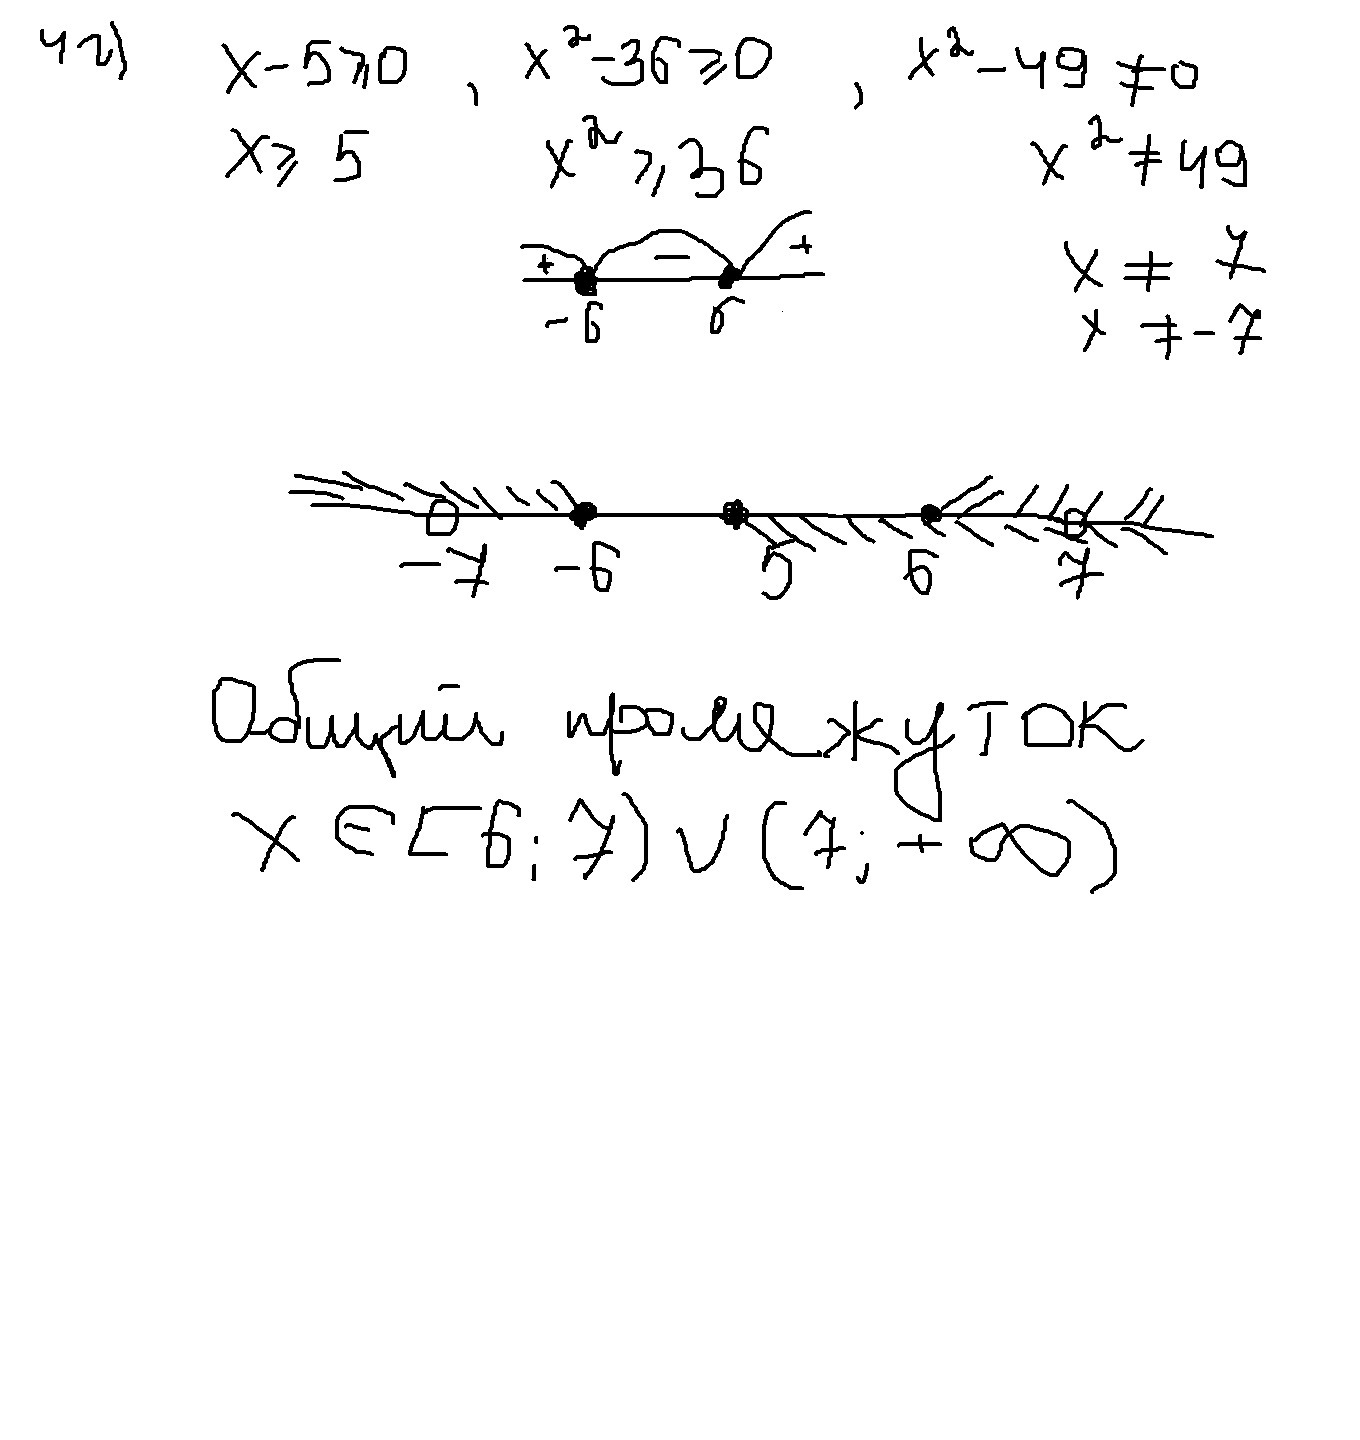 4г) x-5⩾0, x²-36⩾0, x²-49≠0
x⩾5 x²⩾36 x²≠49
x≠7
+ - +
-6 6 x≠-7
-7 -6 5 6 7
Общий промежуток
x∈[6;7)∪(7;+∞)